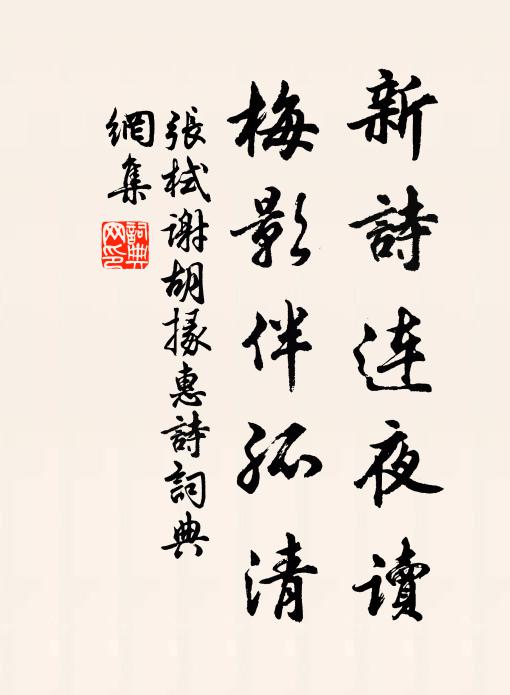 新詩連夜讀
梅影伴孤清
張栻谢胡掾惠詩詞典
網集
詞典
网印